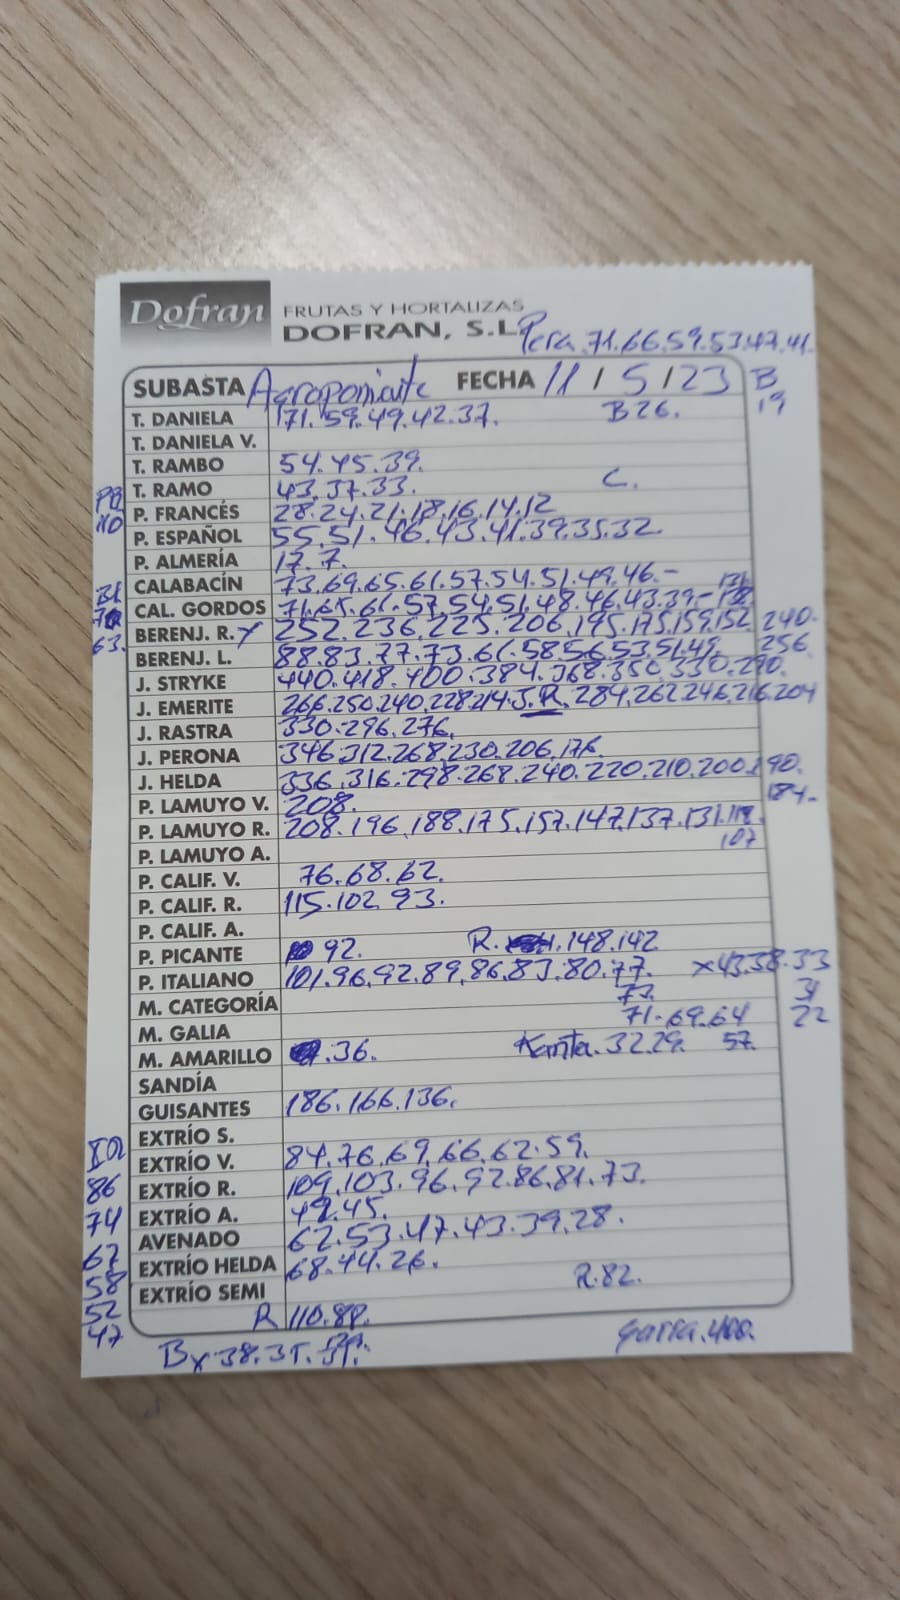 Dofran FRUTAS Y HORTALIZAS
DOFRAN, S.L.
Pera.71.66.59.53.47.41.
SUBASTA Agroponiente FECHA 11 / 5 / 23 B
19
T. DANIELA 171.59.49.42.37. B26.
T. DANIELA V.
T. RAMBO 54.45.39.
T. RAMO 43.37.33. C.
P. FRANCÉS 28.24.21.18.16.14.12
P. ESPAÑOL 55.51.46.43.41.39.35.32.
P. ALMERÍA 17.7.
CALABACÍN 73.69.65.61.57.54.51.49.46.-
CAL. GORDOS 71.65.61.57.54.51.48.46.43.39.-
BERENJ. R. Y 252.236.225.206.195.175.159.152 240.
63. 256
BERENJ. L. 88.83.77.73.61.58.56.53.51.49.
J. STRYKE 440.418.400.384.368.350.330.290.
J. EMERITE 266.250.240.228.214.J.R.284.262.246.216.204
J. RASTRA 330.296.276.
J. PERONA 346.312.268.230.206.176.
J. HELDA 336.316.298.268.240.220.210.200.190.
184-
P. LAMUYO V. 208.
P. LAMUYO R. 208.196.188.175.157.147.137.131.119.
107
P. LAMUYO A.
P. CALIF. V. 76.68.62.
P. CALIF. R. 115.102.93.
P. CALIF. A.
P. PICANTE 92. R. .148.142
P. ITALIANO 101.96.92.89.86.83.80.77. x43.38.33
M. CATEGORÍA 73. 31
M. GALIA 71.69.64 22
M. AMARILLO .36. 32.29. 57.
SANDÍA
GUISANTES 186.166.136.
EXTRÍO S.
EXTRÍO V. 84.76.69.66.62.59.
86 EXTRÍO R. 109.103.96.92.86.81.73.
74 EXTRÍO A. 49.45.
AVENADO 62.53.47.43.39.28.
67 EXTRÍO HELDA 68.44.26.
58 EXTRÍO SEMI R.82.
52 R 110.88.
47 Bx38.35. garra.400.